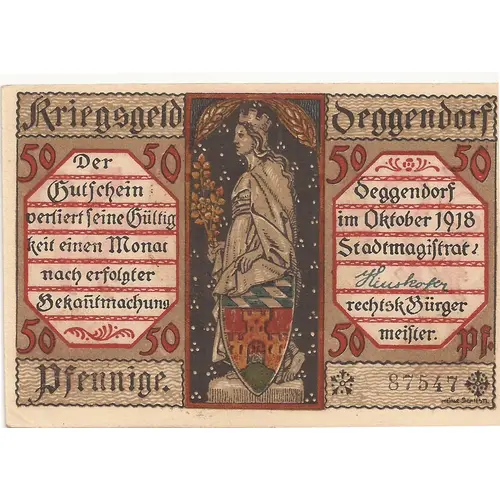 Kriegsgeld Deggendorf
50 50
Der
Gutschein
verliert seine Gültig
keit einen Monat
nach erfolgter
Bekañtmachung
50 50
Pfennige.
50 50
Deggendorf
im Oktober 1918
Stadtmagistrat:
rechtsk Bürger
meister.
50 Pf.
87547